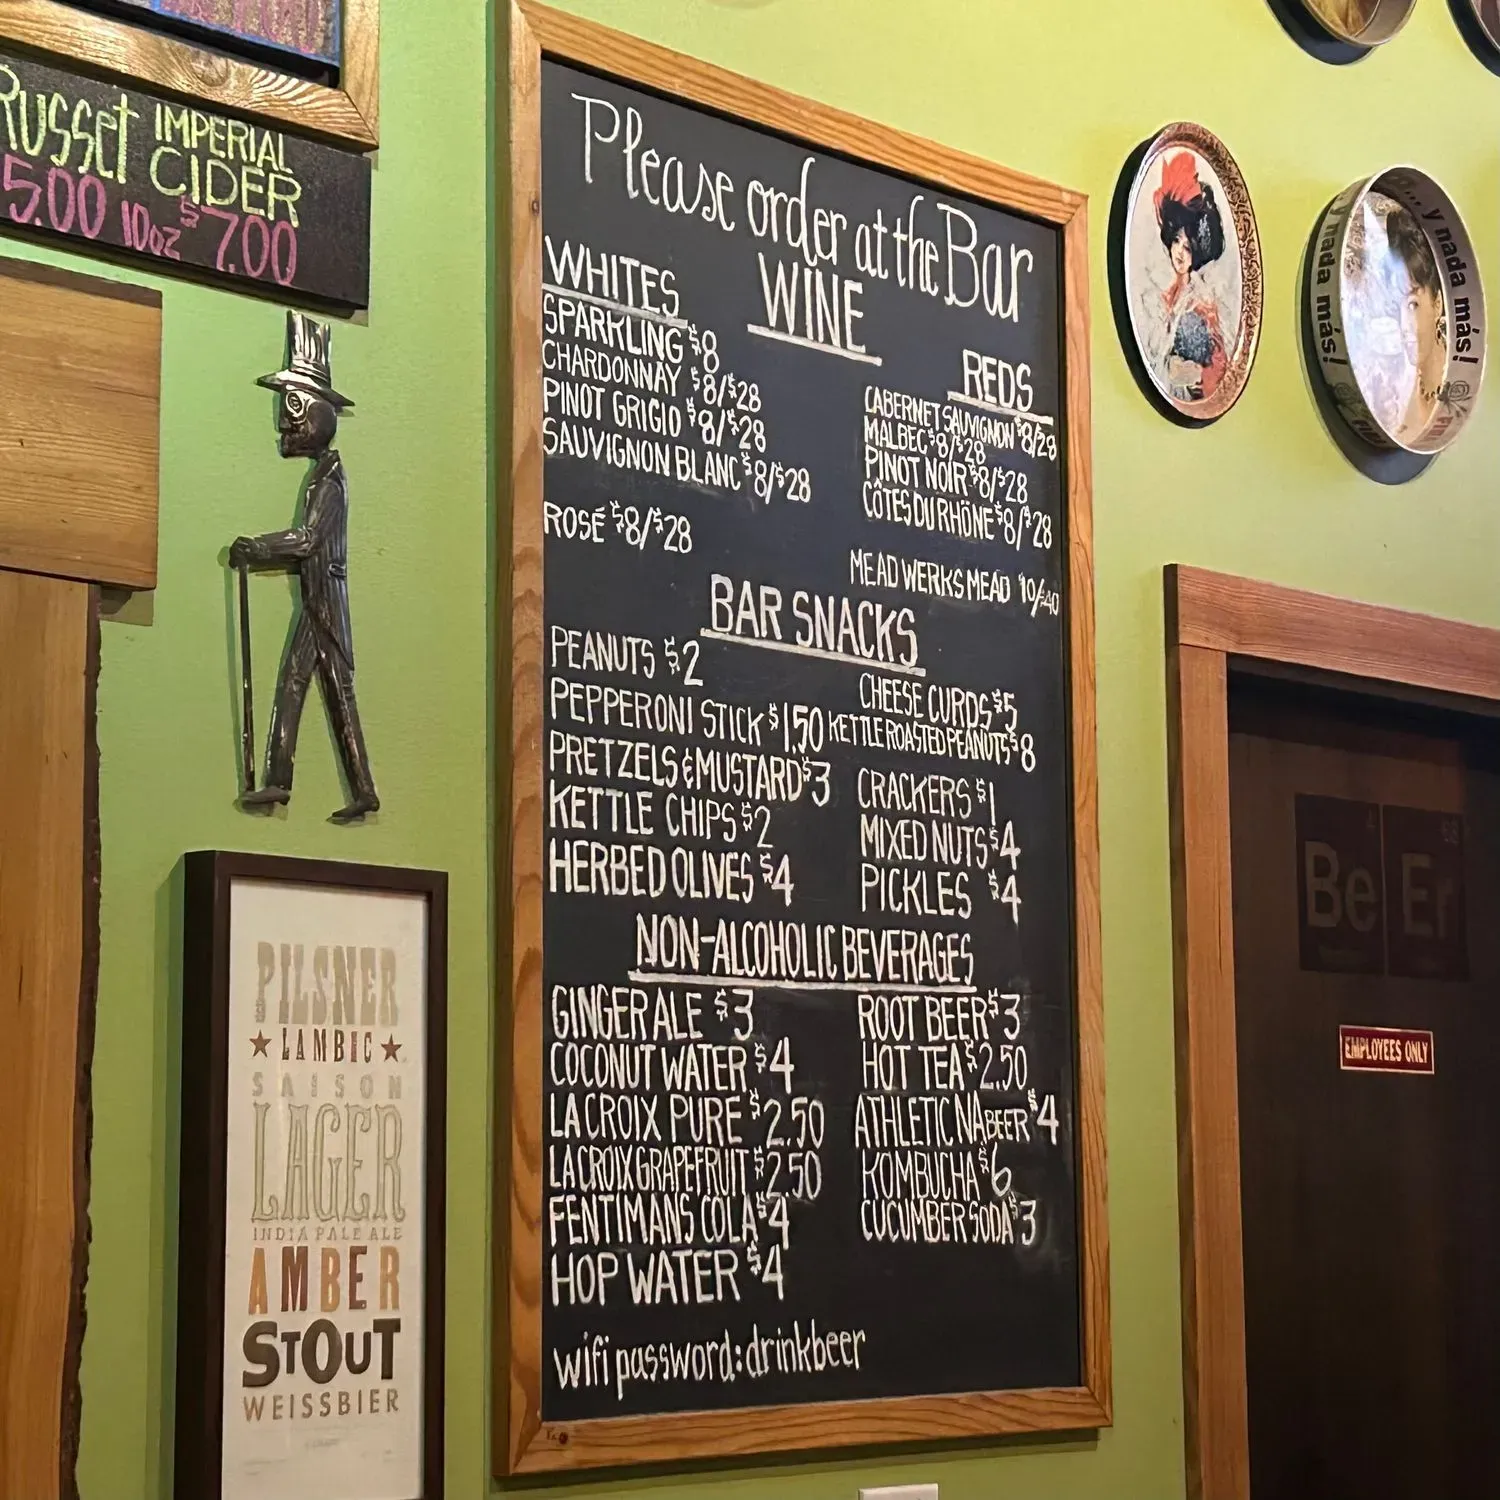 Russet IMPERIAL CIDER
5.00 10oz $7.00
Please order at the Bar
WINE
WHITES
SPARKLING $8
CHARDONNAY $8/$28
PINOT GRIGIO $8/$28
SAUVIGNON BLANC $8/$28
ROSÉ $8/$28
REDS
CABERNET SAUVIGNON $8/28
MALBEC $8/$28
PINOT NOIR $8/$28
CÔTES DU RHÔNE $8/$28
MEAD WERKS MEAD $10/$40
BAR SNACKS
PEANUTS $2
PEPPERONI STICK $1.50
PRETZELS & MUSTARD $3
KETTLE CHIPS $2
HERBED OLIVES $4
CHEESE CURDS $5
KETTLE ROASTED PEANUTS $8
CRACKERS $1
MIXED NUTS $4
PICKLES $4
NON-ALCOHOLIC BEVERAGES
GINGER ALE $3
COCONUT WATER $4
LA CROIX PURE $2.50
LA CROIX GRAPEFRUIT $2.50
FENTIMANS COLA $4
HOP WATER $4
ROOT BEER $3
HOT TEA $2.50
ATHLETIC NA BEER $4
KOMBUCHA $6
CUCUMBER SODA $3
wifi password: drinkbeer
PILSNER
LAMBIC
SAISON
LAGER
INDIA PALE ALE
AMBER
STOUT
WEISSBIER
y nada más!
y nada más!
4
68
Be Er
EMPLOYEES ONLY